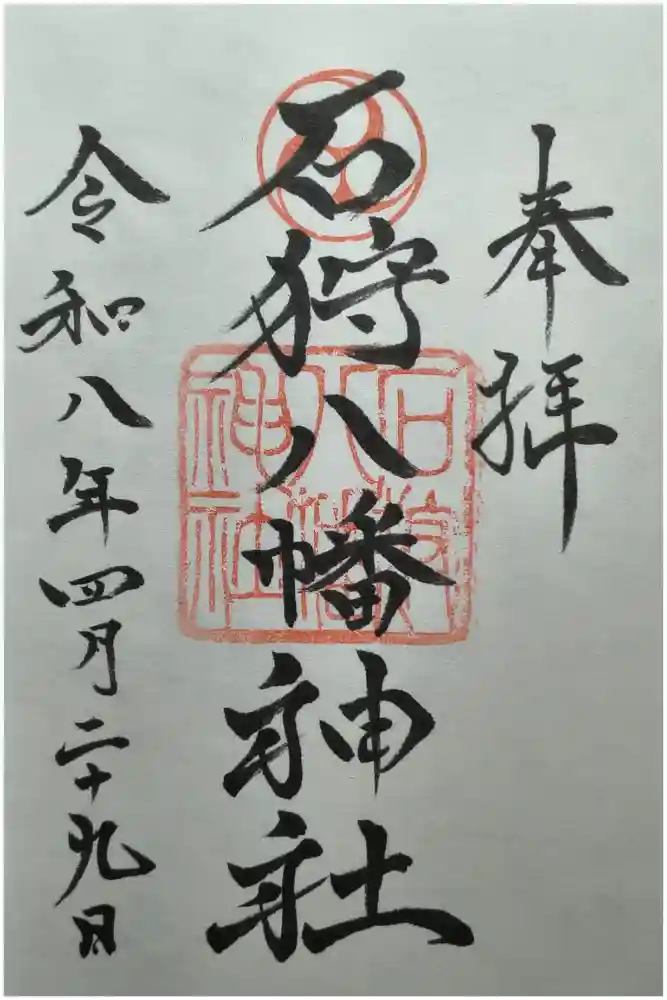 奉拝
石狩八幡神社
石狩八幡神社
令和八年四月二十九日